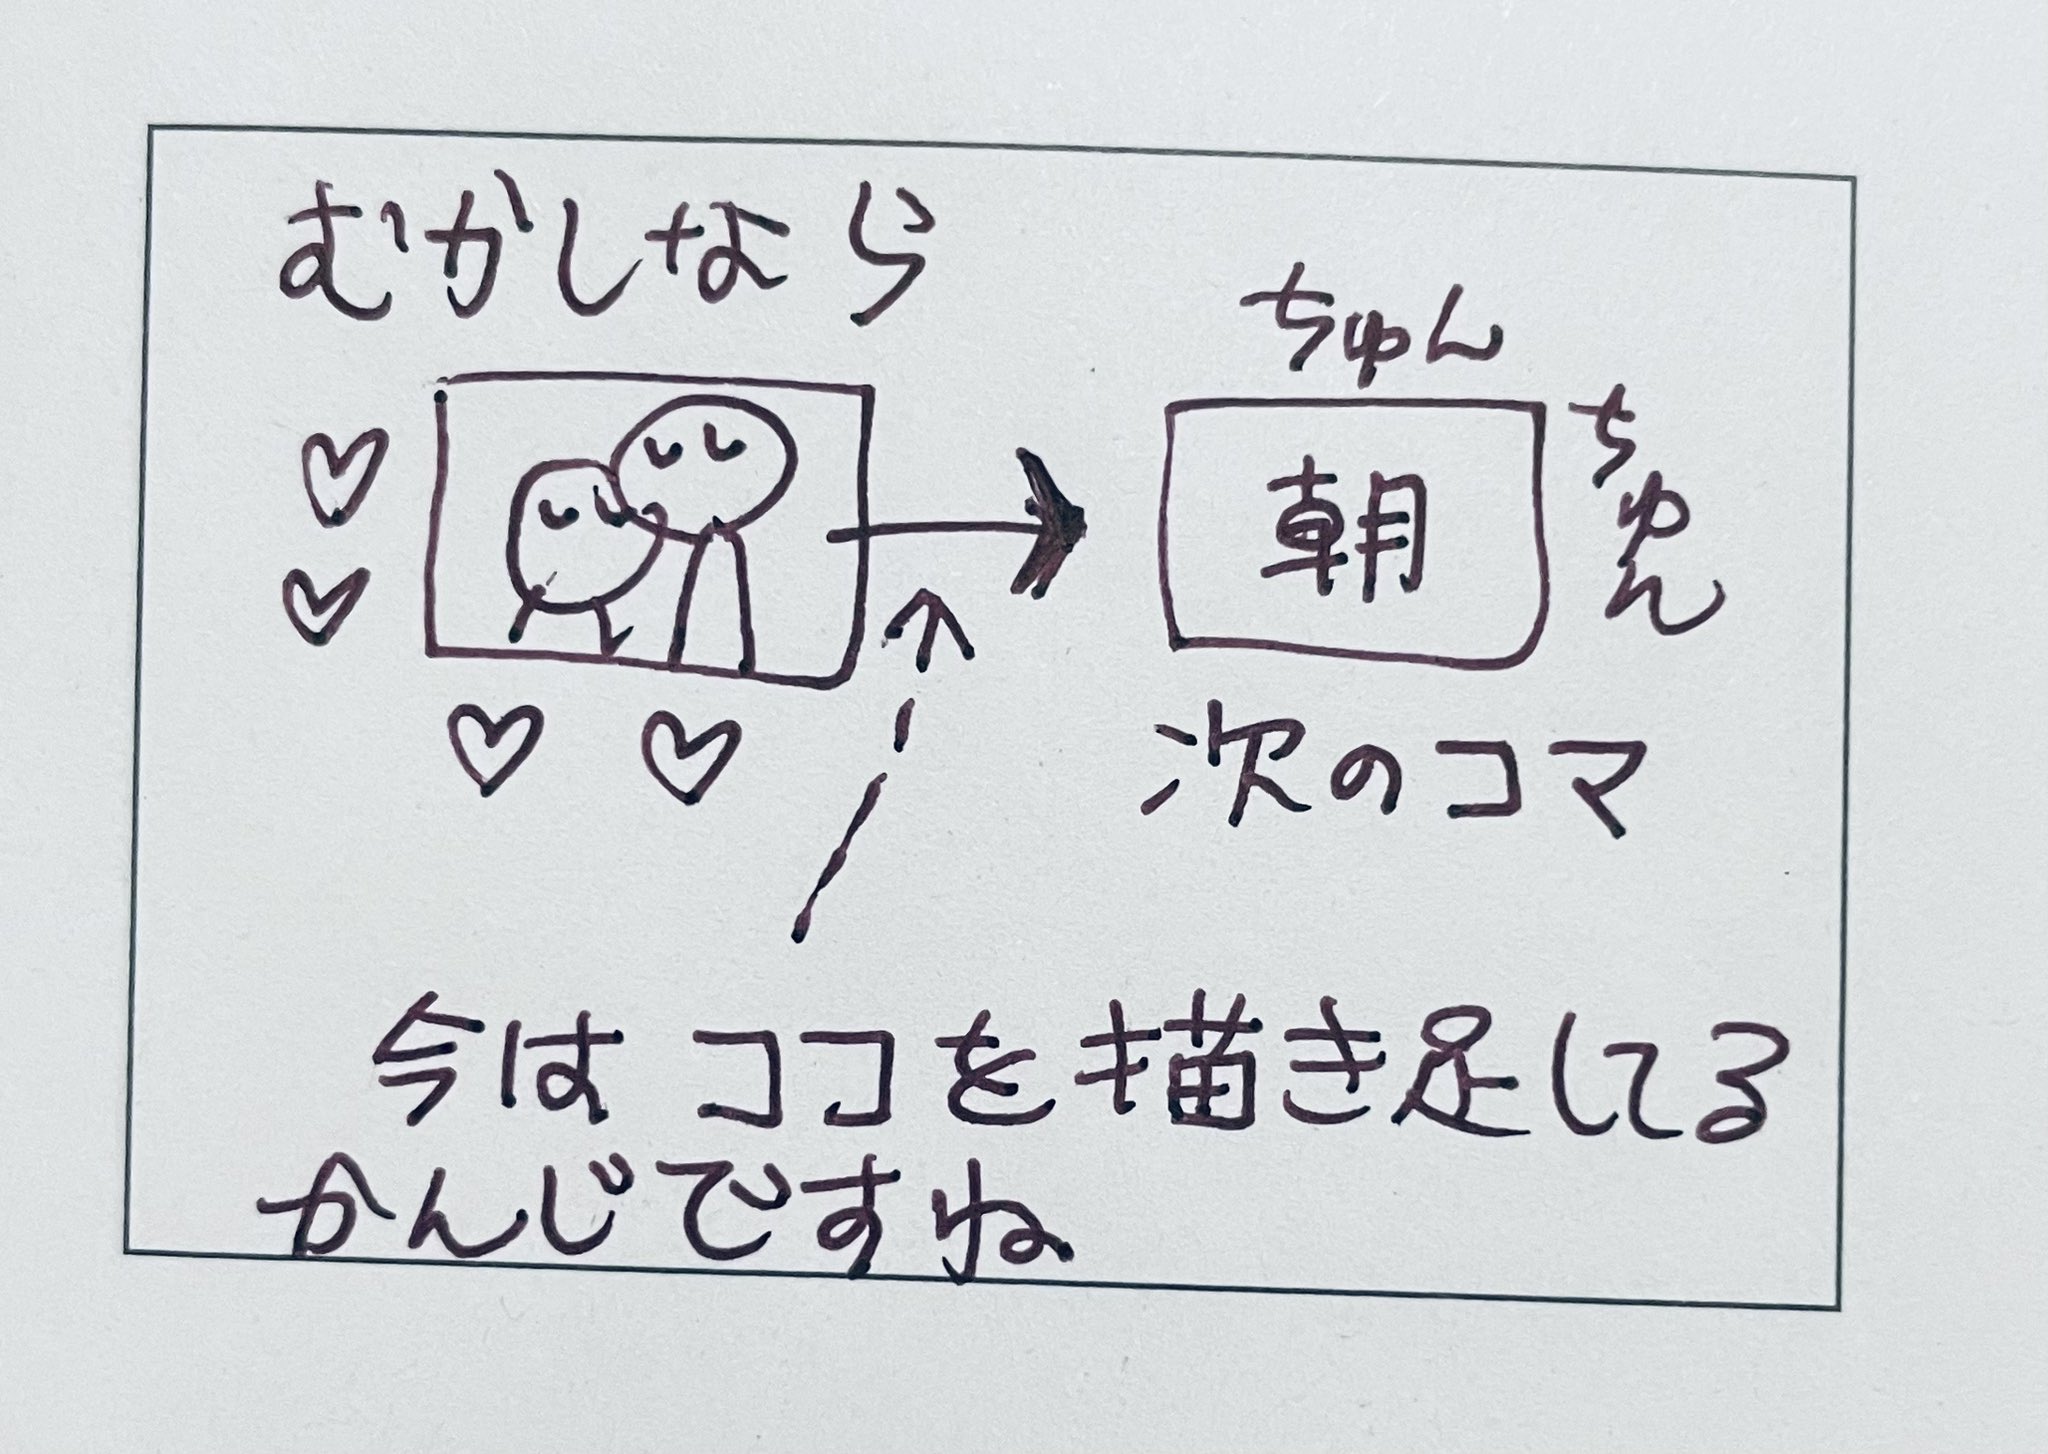 むかしなら
ちゅん
ちゅん
朝
次のコマ
今はココを描き足してる
かんじですね